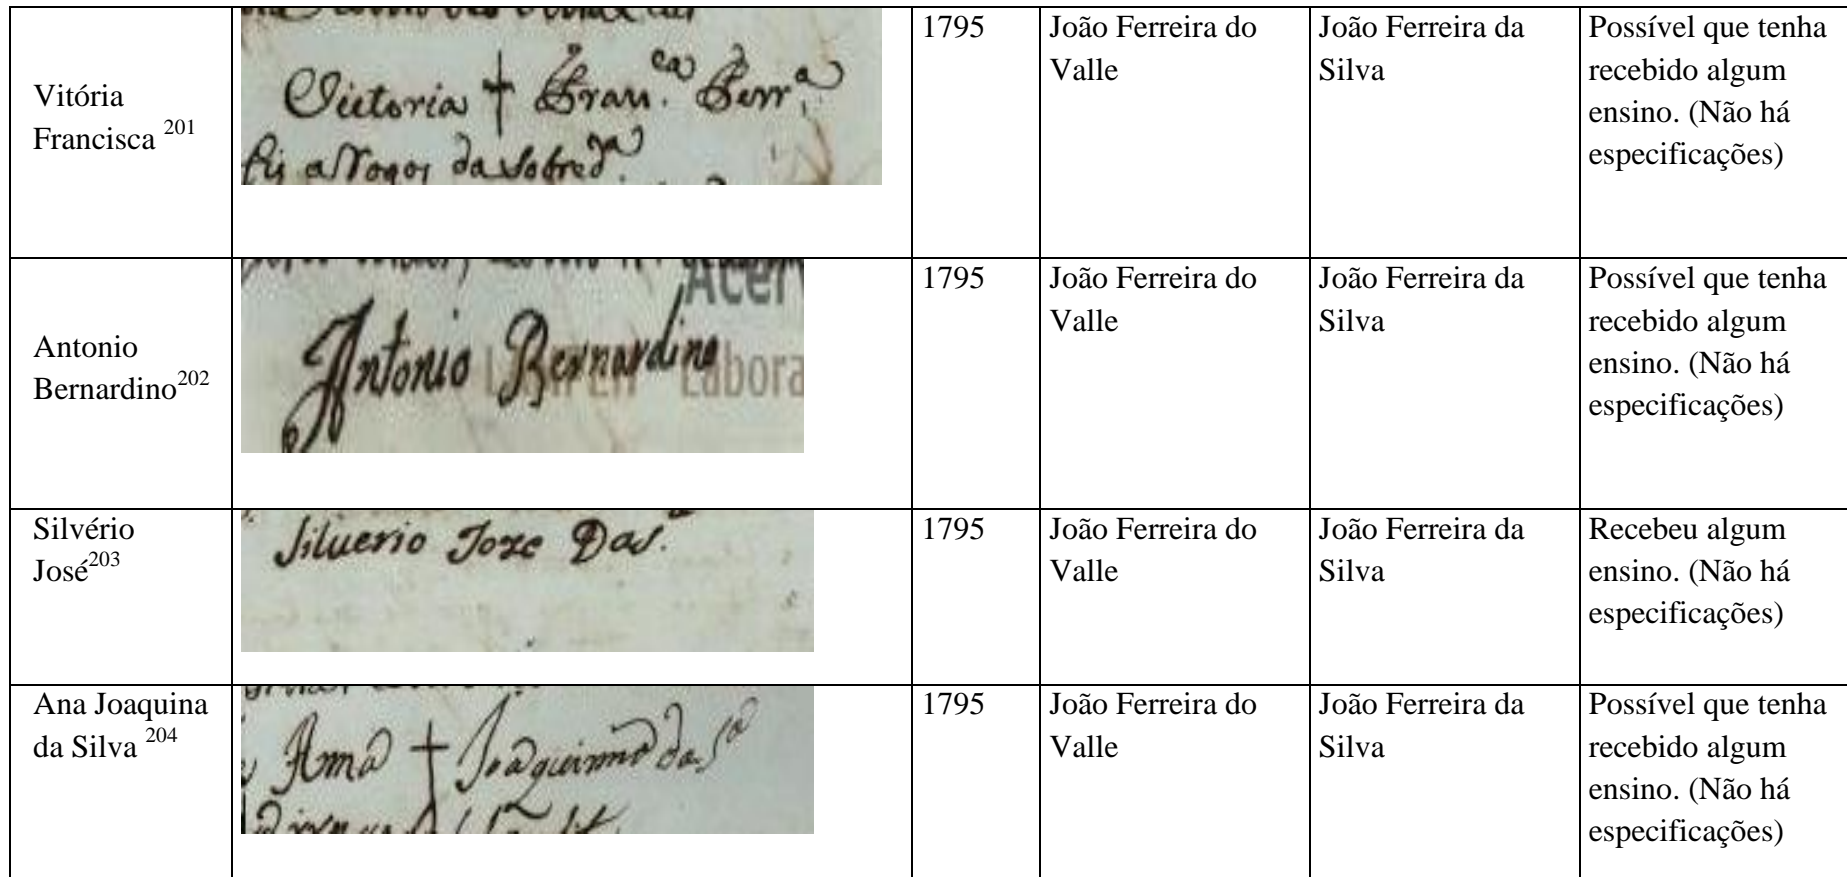 Vitória
Francisca 201
Victoria † Fran.ca Ferr.a
a Rogos da sobred.a
1795
João Ferreira do
Valle
João Ferreira da
Silva
Possível que tenha
recebido algum
ensino. (Não há
especificações)
Antonio
Bernardino202
Acer
Antonio Bernardino
Labora
1795
João Ferreira do
Valle
João Ferreira da
Silva
Possível que tenha
recebido algum
ensino. (Não há
especificações)
Silvério
José203
Siluerio Joze Da s.a
1795
João Ferreira do
Valle
João Ferreira da
Silva
Recebeu algum
ensino. (Não há
especificações)
Ana Joaquina
da Silva 204
Anna † Joaquinna da S.a
1795
João Ferreira do
Valle
João Ferreira da
Silva
Possível que tenha
recebido algum
ensino. (Não há
especificações)